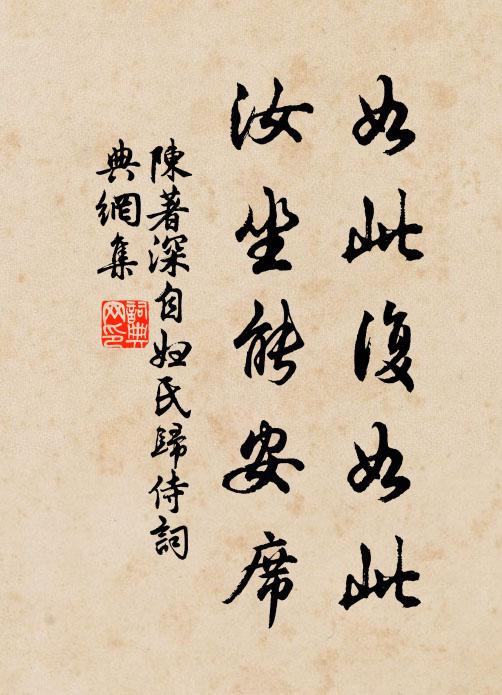 如此復如此
汝坐能安席
陳著深自妲氏歸侍詞
典網集
詞典
网印